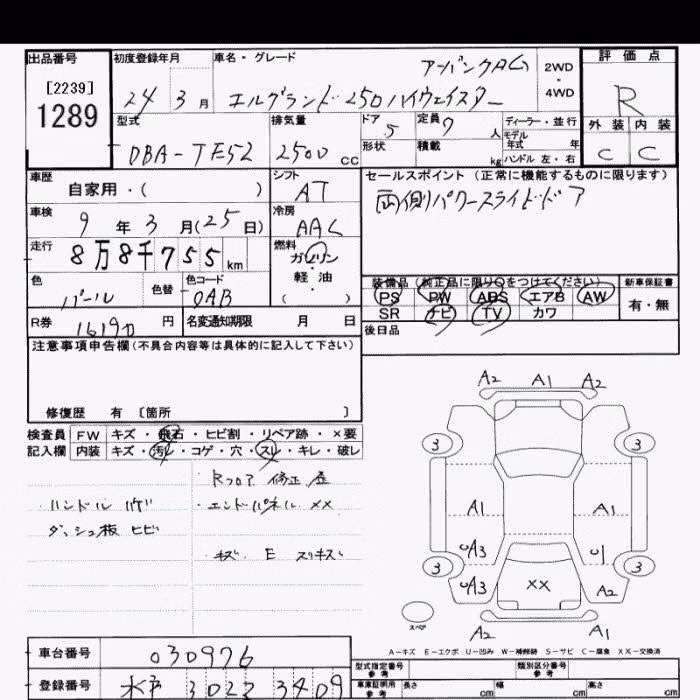 出品番号 初度登録年月 車名・グレード 評価点
[2239]
1289
24年 3月 エルグランド 250ハイウェイスター アーバンクロム 2WD・4WD R
型式 排気量 ドア 5 定員 7人 ディーラー・並行
モデル年式 年
外装 内装
DBA-TE52 2500cc 形状 積載 kg ハンドル 左・右 C C
車歴 自家用・( ) シフト AT セールスポイント (正常に機能するものに限ります)
両側パワースライドドア
車検 9年 3月(25日) 冷房 AAC
走行 8万8千755km 燃料 ガソリン・軽油 ( )
色 パール 色替 色コード QAB
装備品 (純正品に限り○をつけてください) 新車保証書
PS PW ABS エアB AW 有・無
SR ナビ TV カワ
R券 16190円 名変通知期限 月 日 後日品
注意事項申告欄 (不具合内容等は具体的に記入して下さい)
修復歴 有 〔箇所 〕
検査員 FW キズ・飛石・ヒビ割・リペア跡・×要
記入欄 内装 キズ・汚レ・コゲ・穴・スレ・キレ・破レ
Rフロア 修正 歪
・ハンドル ハゲ ・エンドパネル ××
ダッシュ板 ヒビ
・キズ E スリキズ
A2 A1 A2
3 3
A1 A1
UA3 U1
3 3
UA3 ×× A2
スペア
A2 A1
A-キズ E-エクボ U-凹み W-補修跡 S-サビ C-腐食 XX-交換済
車台番号 030976
型式指定番号 参考 類別区分番号 参考
登録番号 水戸 302 ス 3409
車庫証明用 参考 長さ cm 幅 cm 高さ cm